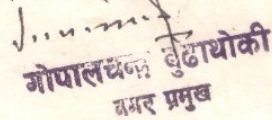 गोपालचन्द्र बुढाथोकी
नगर प्रमुख